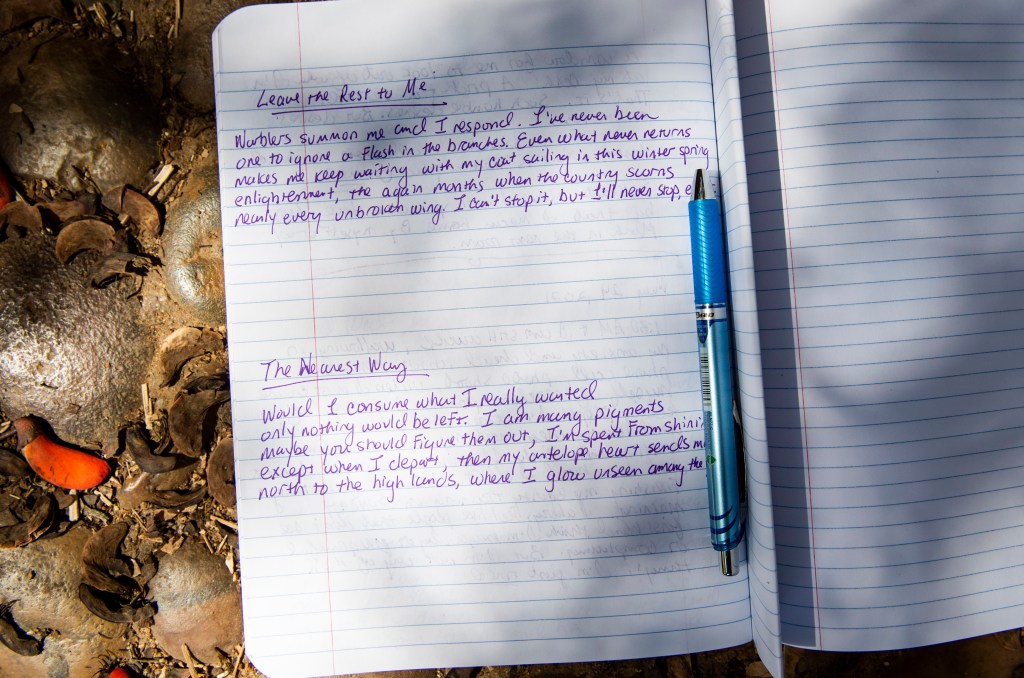 Leave the Rest to Me
Warblers summon me and I respond. I've never been
one to ignore a flash in the branches. Even what never returns
makes me keep waiting with my coat sailing in this winter spring
enlightenment, the again months when the country scorns
nearly every unbroken wing. I can't stop it, but I'll never stop, e
The Nearest Way
Would I consume what I really wanted
only nothing would be left. I am many pigments
maybe you should figure them out, I'm spent from shini
except when I depart, then my antelope heart sends m
north to the high lands, where I glow unseen among the